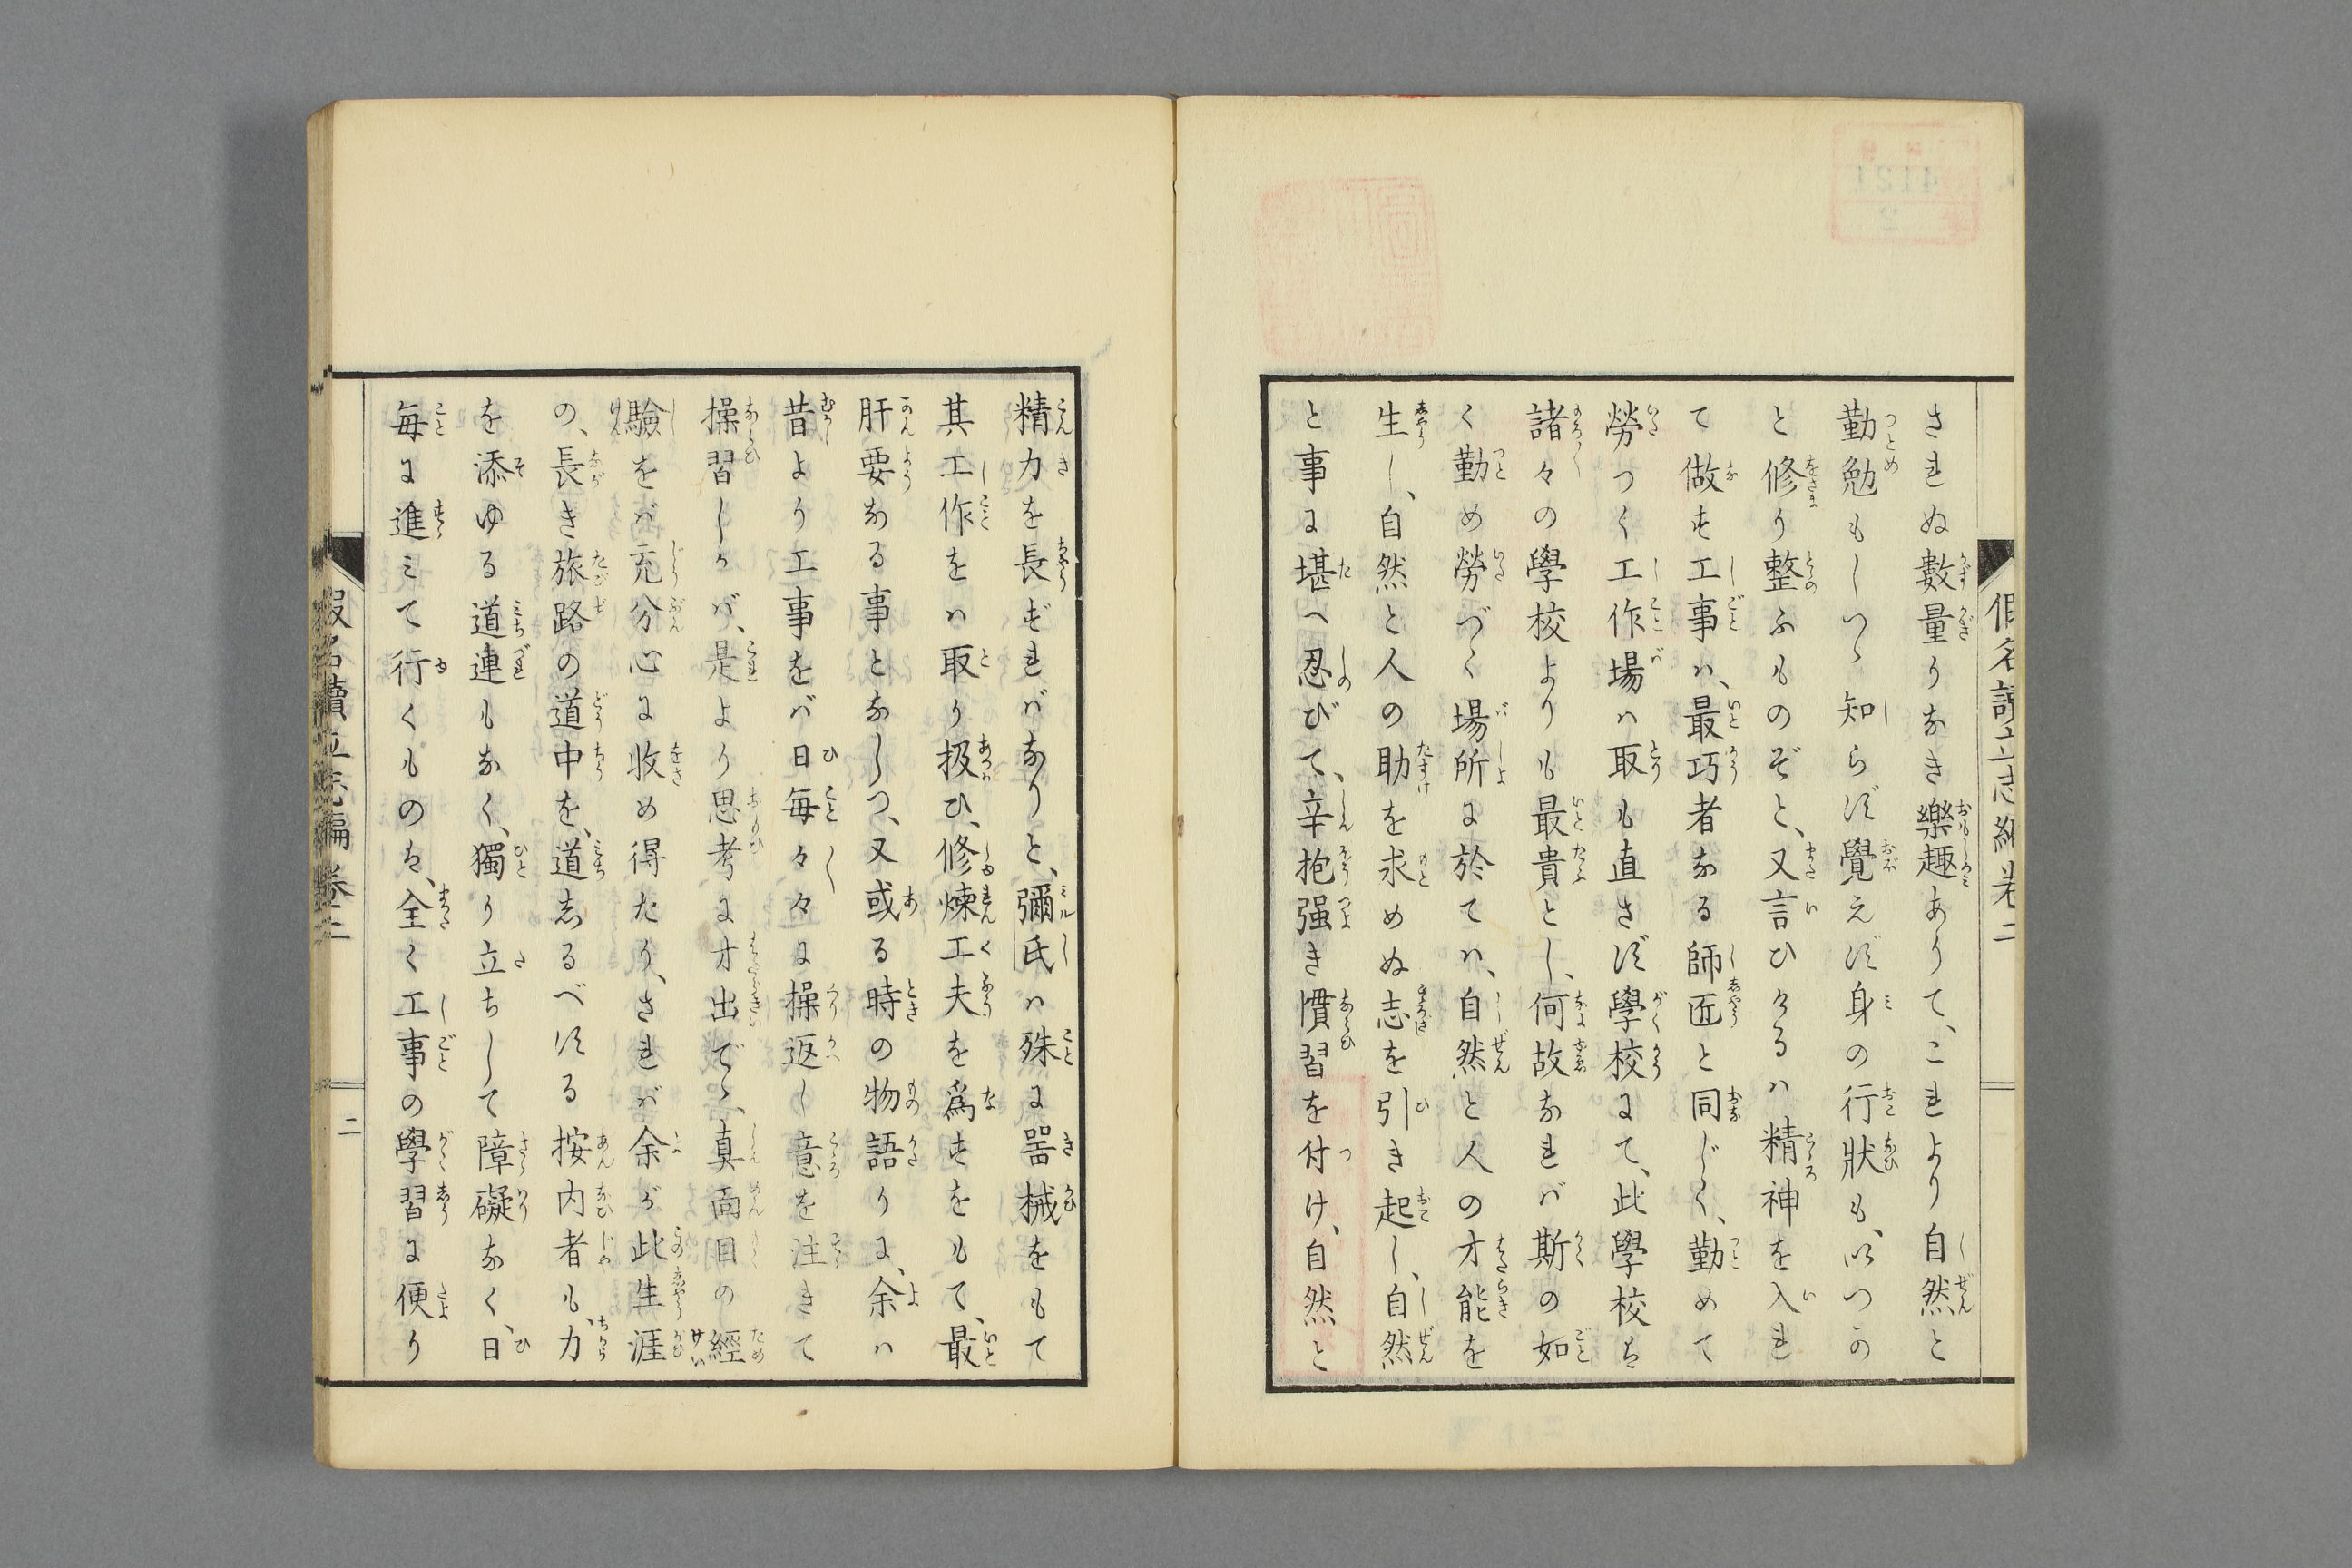 假名讀立志編卷二
されぬ數量りなき樂趣ありて、これより自然と
勤勉もしつゝ知らず覺えず身の行狀も、いつか
と修り整ふものぞと、又言ひけるハ精神を入れ
て做す工事ハ、最巧者なる師匠と同じく、勤めて
勞つく工作場ハ取も直さず學校にて、此學校は
諸々の學校よりも最貴とし、何故なれバ斯の如
く勤め勞づく場所に於てハ、自然と人の才能を
生し、自然と人の助を求めぬ志を引き起し、自然
と事に堪へ忍びて、辛抱强き慣習を付け、自然と
精力を長ずれバなりと、彌氏ハ殊に器械をもて
其工作をハ取り扱ひ、修煉工夫を爲すをもて、最
肝要なる事となしつ、又或る時の物語りに、余ハ
昔より工事をバ日每々々に操返し意を注きて
操習しかバ、是より思考に才出でゝ、真面目の經
驗をバ充分心に收め得たり、されバ余が此生涯
の、長き旅路の道中を、道志るべする按内者も、力
を添ゆる道連もなく、獨り立ちして障礙なく、日
每に進ミて行くものは、全く工事の學習に便り
假名讀立志編卷二
二